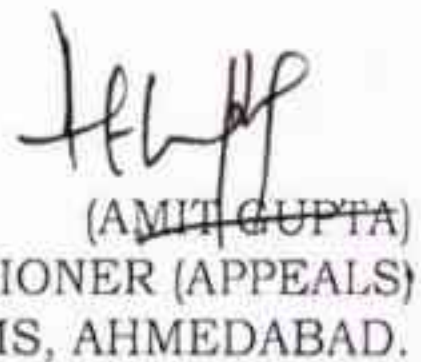 (AMIT GUPTA)
IONER (APPEALS)
MS, AHMEDABAD.